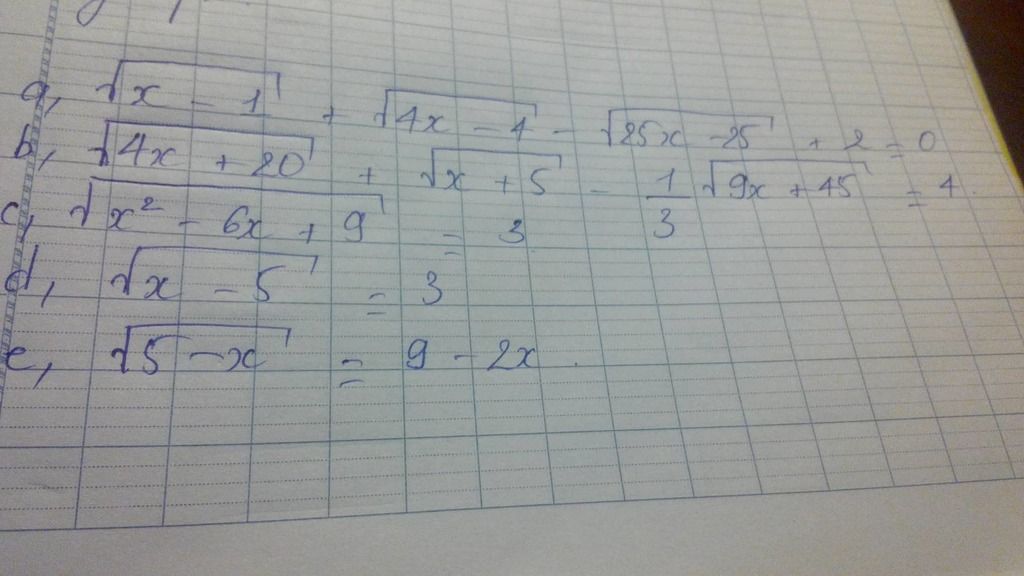 a, √(x - 1) + √(4x - 4) - √(25x - 25) + 2 = 0
b, √(4x + 20) + √(x + 5) - 1/3 √(9x + 45) = 4.
c, √(x² - 6x + 9) = 3
d, √(x - 5) = 3
e, √(5 - x) = 9 - 2x.